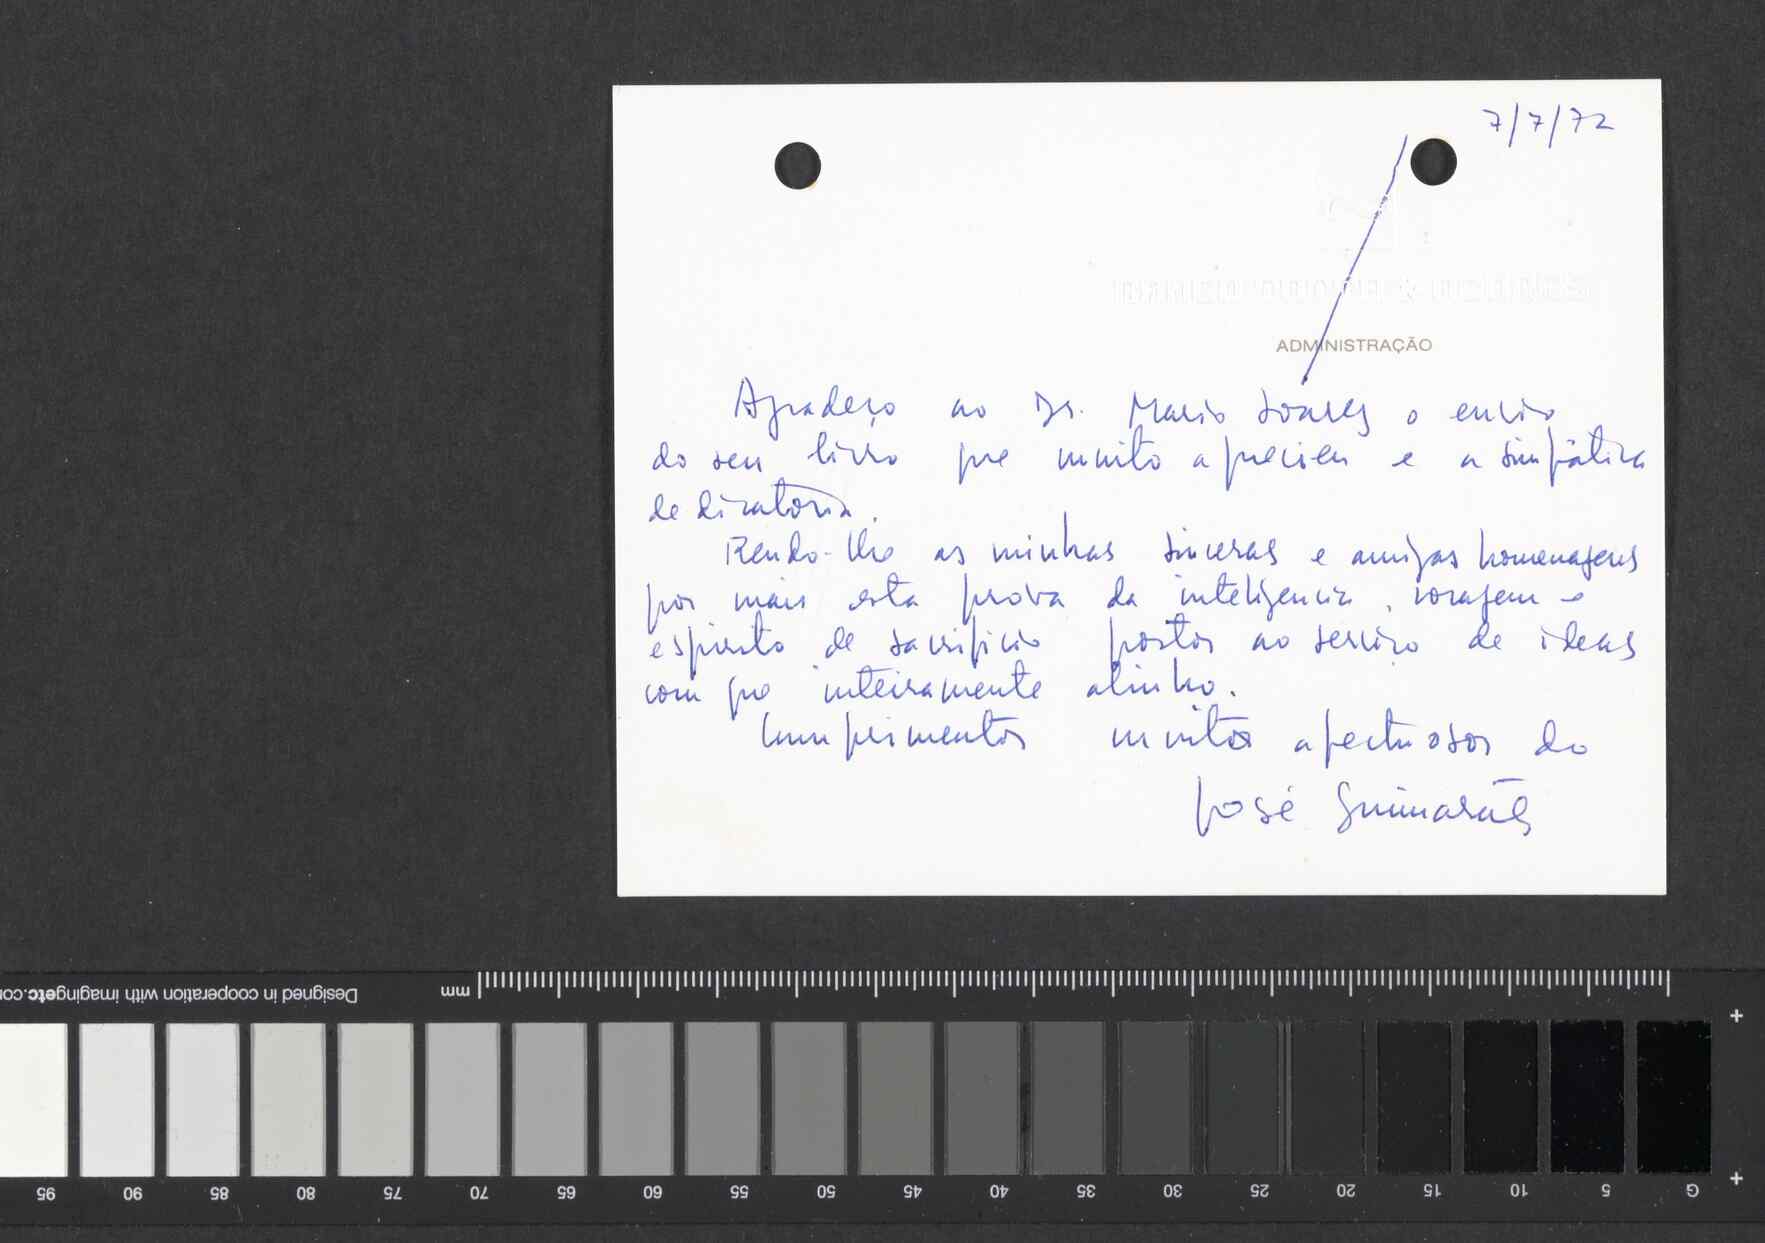 7/7/72
ADMINISTRAÇÃO
Agradeço ao Dr. Mario Soares o envio
do seu livro que muito apreciei e a simpática
dedicatoria.
Rendo-lhe as minhas sinceras e amigas homenagens
por mais esta prova da inteligencia, coragem e
espirito de sacrificio postos ao serviço de ideas
com que inteiramente alinho.
Cumprimentos muitos afectuosos do
José Guimarães
mm
Designed in cooperation with imagingetc.co
95 90 85 80 75 70 65 60 55 50 45 40 35 30 25 20 15 10 5 G